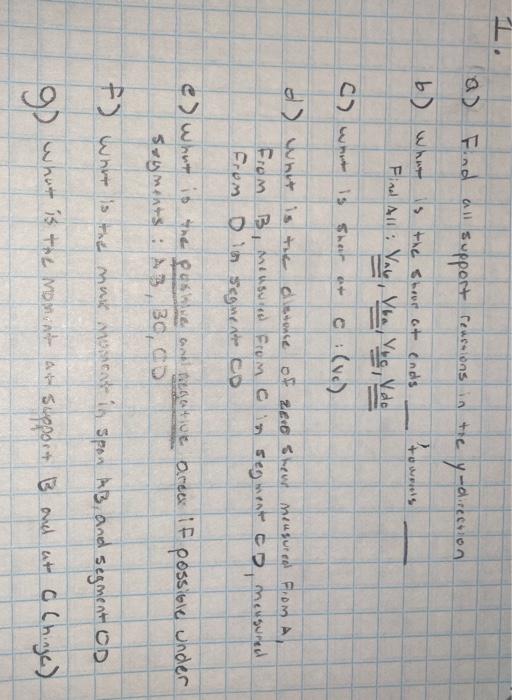 1.
a) Find all support reactions in the y-direction
b) what is the shear at ends ___ towards ___
Find All : Vab, Vba, Vbc, Vdc
c) what is shear at c : (Vc)
d) What is the distance of zero shear measured from A,
from B, measured from C in segment CD, measured
from D in segment CD
e) what is the positive and negative areas if possible under
segments : AB, BC, CD
f) what is the max moment in span AB, and segment CD
g) what is the moment at support B and at C (hinge)